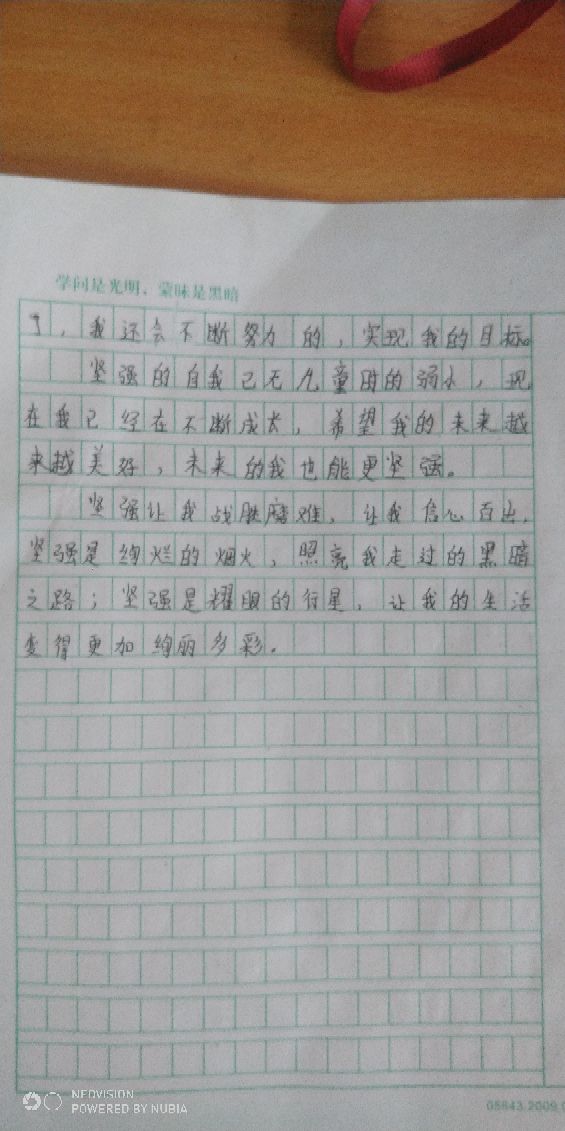 学问是光明，蒙昧是黑暗
了，我还会不断努力的，实现我的目标。
坚强的自我已无儿童时的弱小，现
在我已经在不断成长，希望我的未来越
来越美好，未来的我也能更坚强。
坚强让我战胜磨难，让我信心百出，
坚强是绚烂的烟火，照亮我走过的黑暗
之路；坚强是耀眼的行星，让我的生活
变得更加绚丽多彩。
NEOVISION
POWERED BY NUBIA
05843.2009.